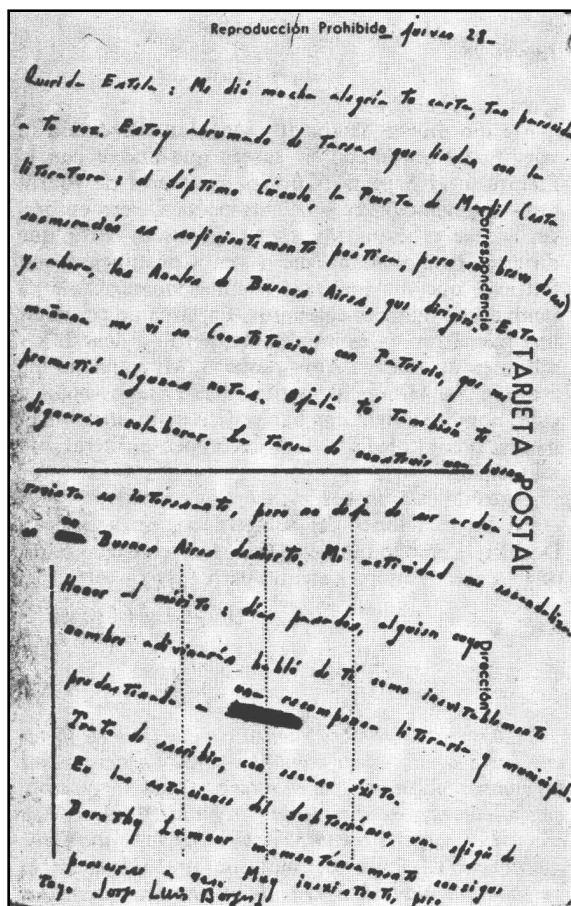 Reproducción Prohibida — jueves 28 —
Querida Estela: Me dió mucha alegría tu carta, tan parecida
a tu voz. Estoy abrumado de tareas que lindan con la
literatura: el Séptimo Círculo, la Puerta de Marfil (esta
enumeración es suficientemente poética, pero sus breves
y, ahora, los Anales de Buenos Aires, que dirigiré. Esta
mañana me vi en Constitución con Patricio, que me
prometió algunas notas. Ojalá tú también te
dignaras colaborar. La tarea de construir una buena
revista es interesante, pero no deja de ser ardua
en un Buenos Aires desierto. Mi actividad me escandaliza.
Honor al mérito: días pasados, alguien cuyo
nombre adivinarás habló de tí como inevitablemente
predestinada a una recompensa literaria y municipal.
Trato de escribir, con escaso éxito.
En las estaciones del Subterráneo, una efigie de
Dorothy Lamour momentáneamente consigue
parecerse a vos. Muy inexistente, pero
tuyo Jorge Luis Borges
Correspondencia
TARJETA POSTAL
Dirección